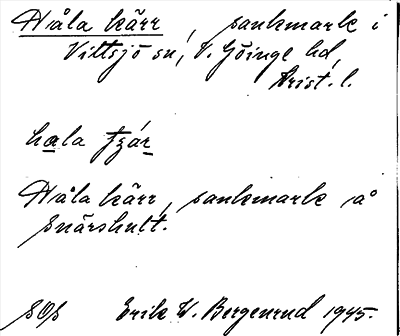 Håla kärr, sankmark i
Vittsjö sn, V. Göinge hd,
Krist. l.
hala
Håla kärr, sankmark å
Snärshult.
SOs Erik W. Bergenrud 1945.